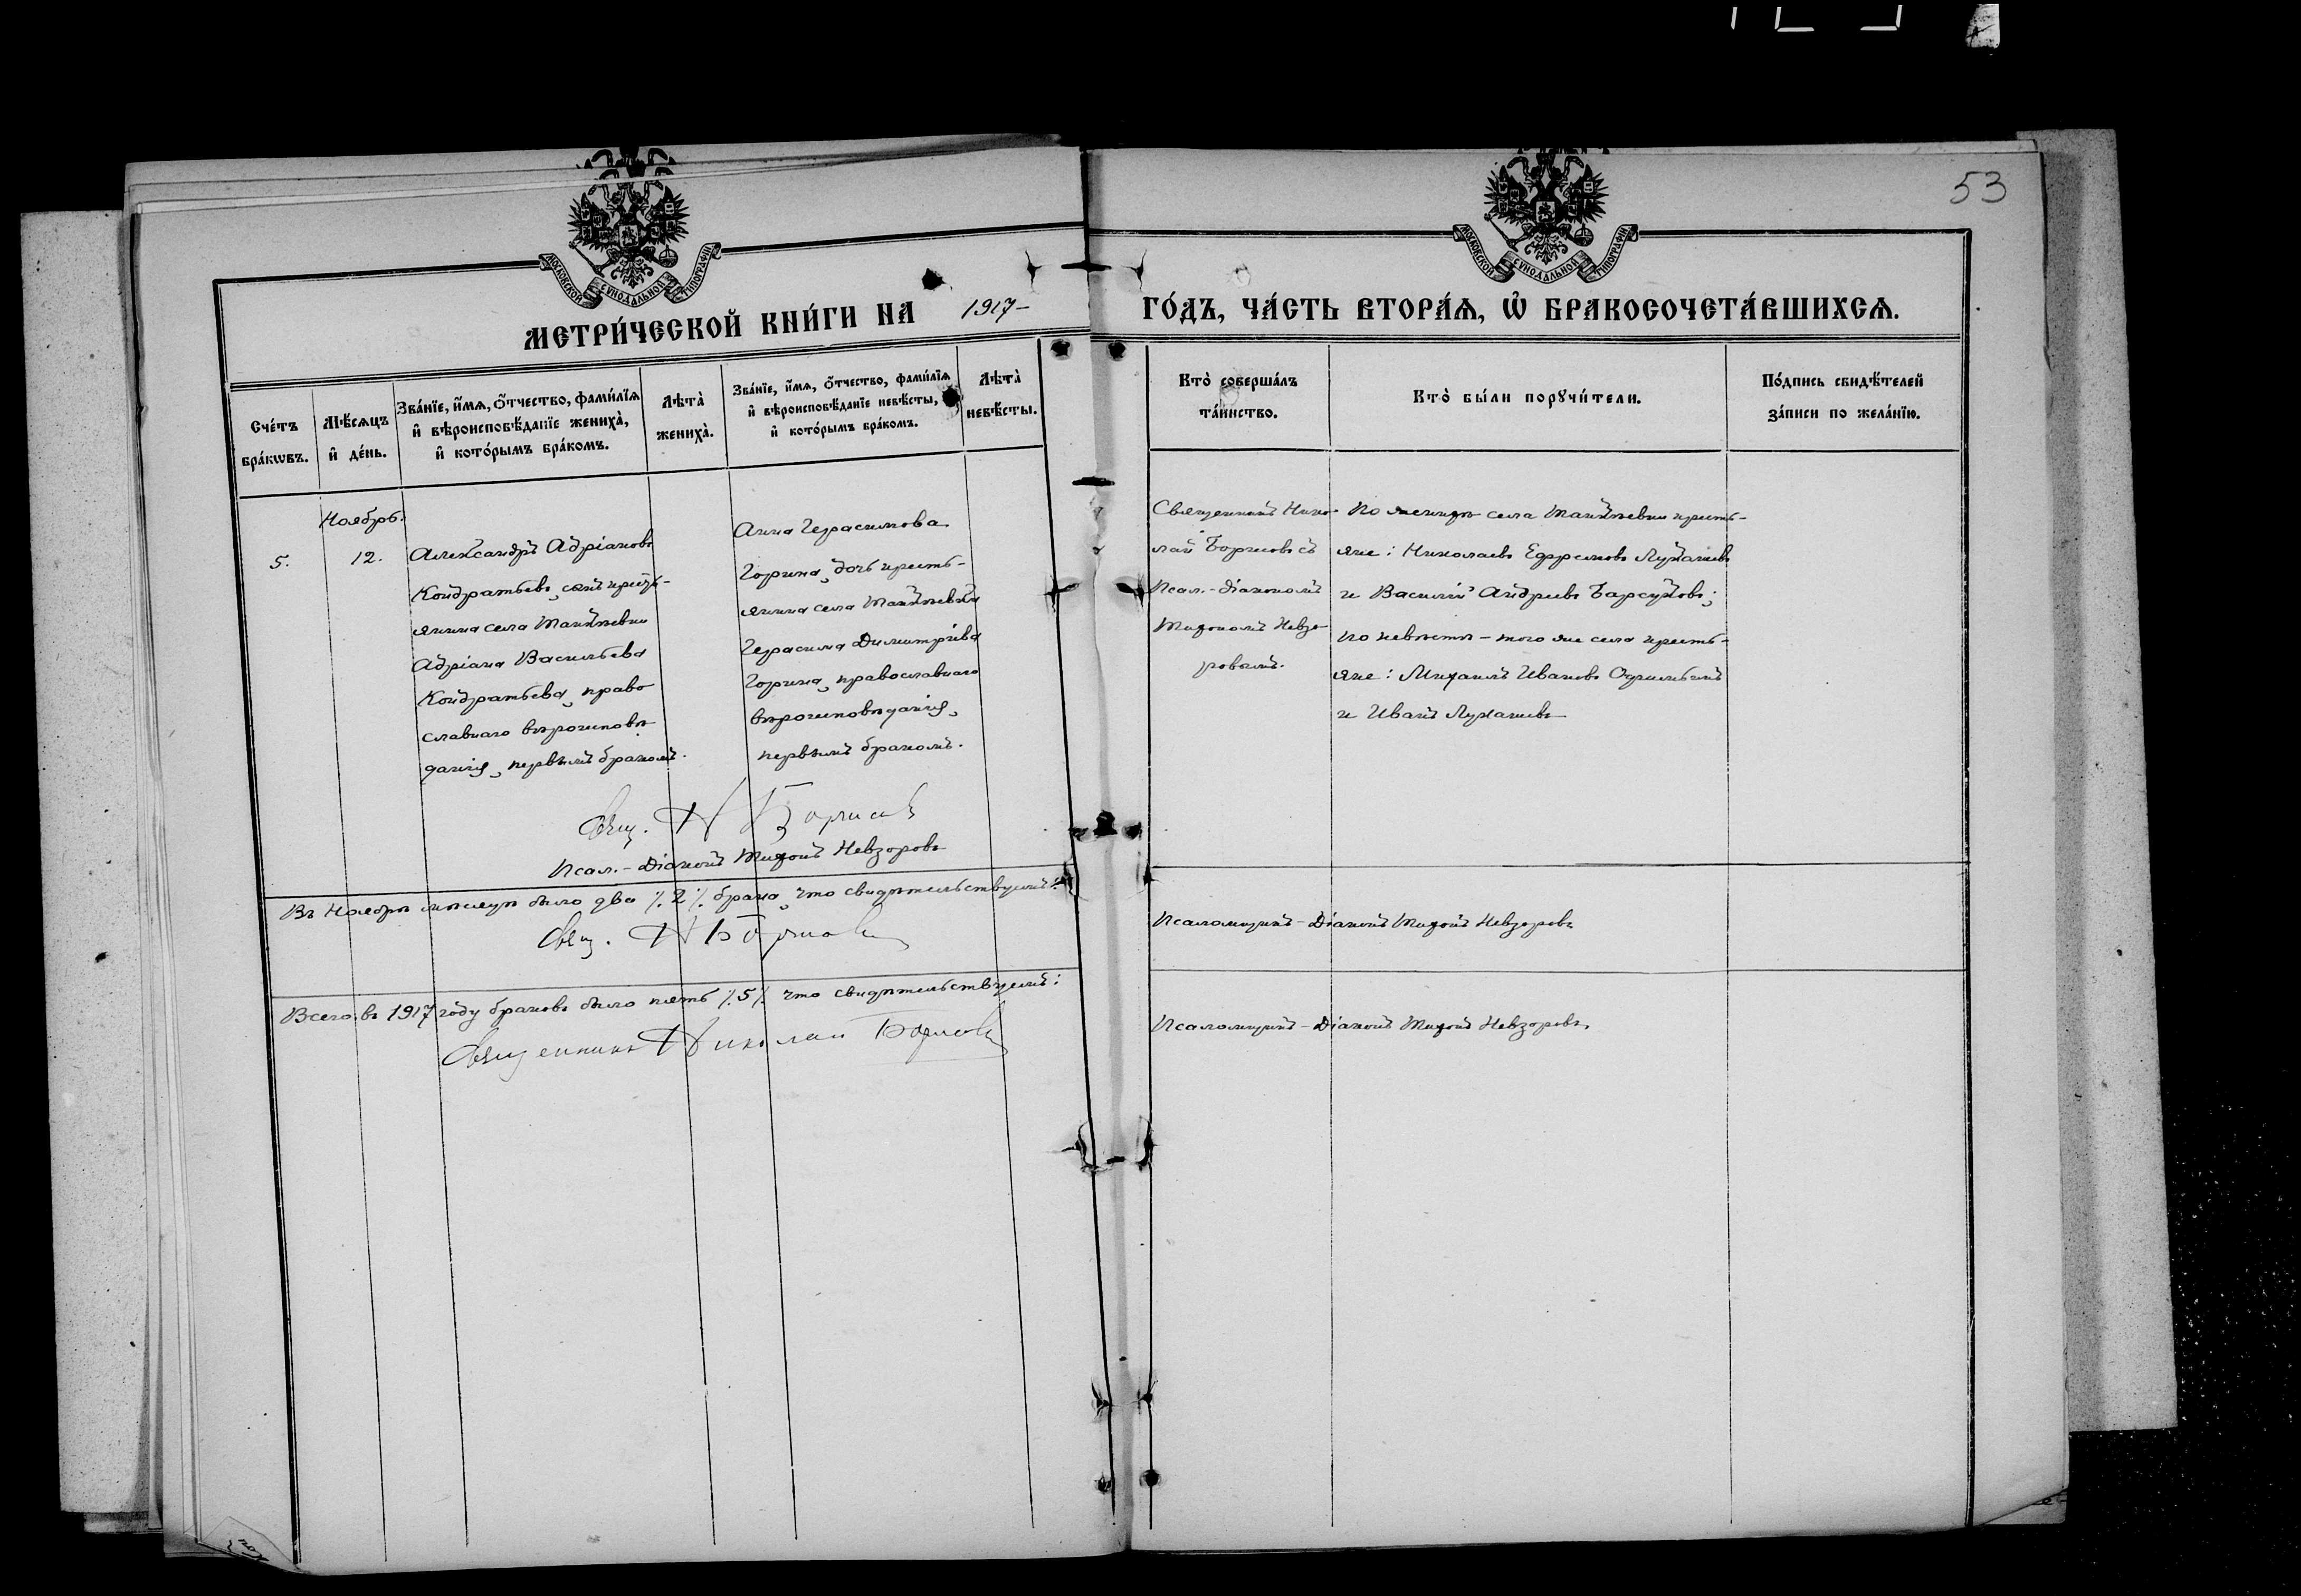 53
МОСКОВСКОЙ СѴНОДАЛЬНОЙ ТИПОГРАФІИ
МОСКОВСКОЙ СѴНОДАЛЬНОЙ ТИПОГРАФІИ
МЕТРИ́ЧЕСКОЙ КНИ́ГИ НА 1917–
ГО́ДЪ, ЧА́СТЬ ВТОРА́Ѧ, Ѡ҆ БРАКОСОЧЕТА́ВШИХСѦ.
Сче́тъ
бра́кѡвъ.
Мѣ́сѧцъ
и҆ де́нь.
Зва́нїе, и҆́мѧ, ѻ҆́тчество, фами́лїѧ
и҆ вѣроисповѣ́данїе жениха̀,
и҆ кото́рымъ бра́комъ.
Лѣта̀
жениха̀.
Зва́нїе, и҆́мѧ, ѻ҆́тчество, фами́лїѧ
и҆ вѣроисповѣ́данїе невѣ́сты,
и҆ кото́рымъ бра́комъ.
Лѣта̀
невѣ́сты.
Кто̀ соверша́лъ
та́инство.
Кто̀ бы́ли порꙋчи́тели.
По́дпись свидѣ́телей
за́писи по жела́нїю.
5.
Ноябрь.
12.
Александръ Адріановъ
Кондратьевъ, сынъ кресть-
янина села
Адріана Васильева
Кондратьева, право
славнаго вѣроисповѣ
данія, первымъ бракомъ.
Анна Герасимова
Горина, дочь кресть-
янина села
Герасима Димитріева
Горина, православнаго
вѣроисповѣданія,
первымъ бракомъ.
Священникъ Нико-
лай Борисовъ съ
Псал.-Діакономъ
Тихономъ Невзо-
ровымъ.
По женихѣ села кресть-
яне: Николаевъ Ефремовъ
и Василій Андреевъ Барсуковъ;
по невѣстѣ – того же села кресть-
яне: Михаилъ Ивановъ
и Иванъ
Свящ. Н Борисовъ
Псал.-Діаконъ Тихонъ Невзоровъ
Въ Ноябрѣ мѣсяцѣ было два ⁒ 2 ⁒ брака, что свидѣтельствуемъ:
Свящ. Н Борисовъ
Псаломщикъ-Діаконъ Тихонъ Невзоровъ
Всего въ 1917 году браковъ было пять ⁒ 5 ⁒ что свидѣтельствуемъ:
Священникъ Николай Борисовъ
Псаломщикъ-Діаконъ Тихонъ Невзоровъ